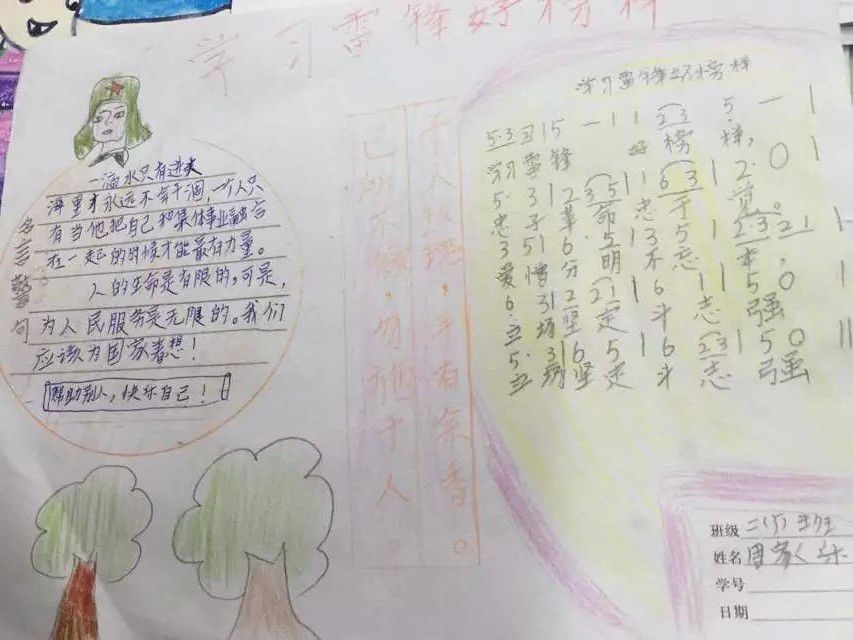 学习雷锋好榜样
名言警句
一滴水只有进大
海里才永远不会干涸,一个人只
有当他把自己和集体事业融合
在一起的时候才能最有力量。
人的生命是有限的,可是,
为人民服务是无限的。我们
应该为国家着想!
帮助别人,快乐自己!
予人玫瑰,手有余香。
己所不欲,勿施于人。
学习雷锋好榜样
5·3 3 1 5 一 1 1 2 3 5· 一 1
学习雷锋 好榜样,
5· 3 1 2 3 5 1 6 3 1 2· 0 1
忠于革命忠于党。
3 5 1 6· 5 1 3 5 1 2·3 2 1
爱憎分明不忘本,
6· 3 1 2 2 1 1 6 1 5 0 1
立场坚定斗志强
5· 3 1 6 5 1 6 2 3 1 5 0 ||
立场坚定斗志强
班级
姓名
学号
日期